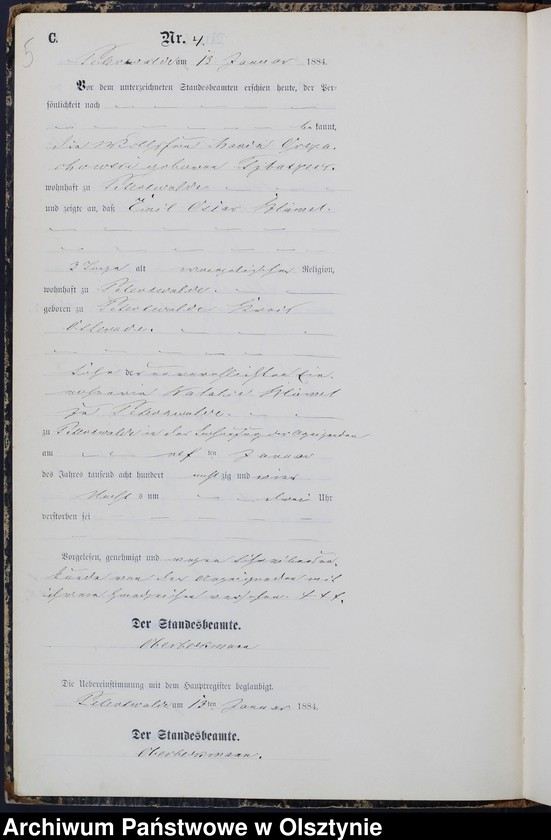 5
C.
Nr. 4.
Peterswalde am 13 Januar 1884.
Vor dem unterzeichneten Standesbeamten erschien heute, der Per-
sönlichkeit nach
bekannt,
die Maria
geborene
wohnhaft zu Peterswalde
und zeigte an, daß Emil Oscar Blümel.
3 Tage alt evangelischer Religion,
wohnhaft zu Peterswalde.
geboren zu Peterswalde Kreis
Osterode.
Sohn der unverehelichten Ein-
wohnerin Natalie Blümel
zu Peterswalde.
zu Peterswalde in der Behausung der Anzeigenden
am elf ten Januar
des Jahres tausend acht hundert acht zig und vier
Nachts um Uhr
verstorben sei
Vorgelesen, genehmigt und wegen Schreibens-
kunde von der Anzeigenden mit
ihren Handzeichen versehen. + + +.
Der Standesbeamte.
Die Uebereinstimmung mit dem Hauptregister beglaubigt.
Peterswalde am 13ten Januar 1884.
Der Standesbeamte.
Archiwum Państwowe w Olsztynie